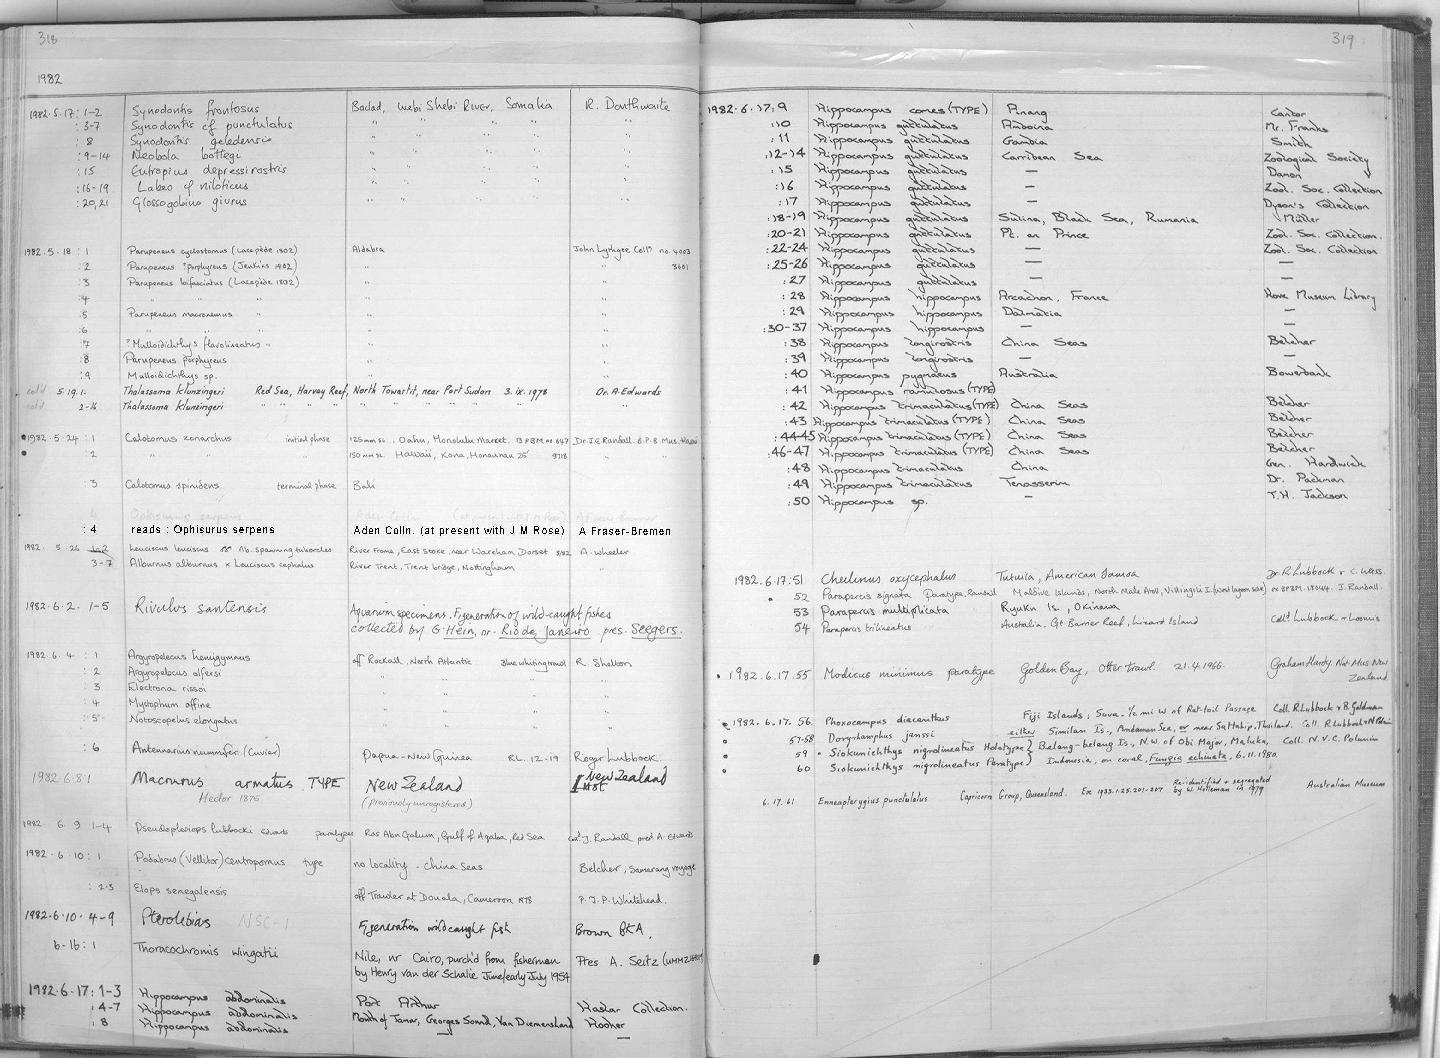 318
1982
1982.5.17: 1-2 Synodontis frontosus Badad, Webi Shebi River, Somalia R. Douthwaite
: 3-7 Synodontis cf punctulatus " " " " "
: 8 Synodontis geledensis " " " " "
: 9-14 Neobola bottegi " " " " "
: 15 Eutropius depressirostris " " " " "
: 16-19 Labeo cf niloticus " " " " "
: 20,21 Glossogobius giurus " " " " "
1982.5.18: 1 Parupeneus cyclostomus (Lacepède 1802) Aldabra John Lythgoe Colln no. 4003
: 2 Parupeneus porphyreus (Jenkins 1902) " " 3601
: 3 Parupeneus bifasciatus (Lacepède 1802) " "
: 4 " " " " "
: 5 Parupeneus macronemus " " "
: 6 " " " " "
: 7 "Mulloidichthys flavolineatus" " "
: 8 Parupeneus porphyreus " "
: 9 Mulloidichthys sp. " "
5.19.1. Thalassoma klunzingeri Red Sea, Harvey Reef, North Towartit, near Port Sudan 3.ix.1978 Dr. A. Edwards
2-16 Thalassoma klunzingeri " " " " " " " "
1982.5.24: 1 Calotomus zonarchus initial phase 125mm SL. Oahu, Honolulu Market. BPBM no 647 Dr. J.E. Randall. B.P.B Mus. Hawaii
: 2 " " 150 mm SL. Hawaii, Kona, Honaunau 25' 9718 " "
: 3 Calotomus spinidens terminal phase Bali
: 4 reads : Ophisurus serpens Aden Colln. (at present with J M Rose) A Fraser-Bremen
1982. 5. 26 1-2 Leuciscus leuciscus Nb. spawning tubercles River Frome, East Stoke, near Wareham Dorset A. Wheeler
3-7 Alburnus alburnus x Leuciscus cephalus River Trent, Trent bridge, Nottingham "
1982.6.2. 1-5 Rivulus santensis Aquarium specimens. F1 generation of wild-caught fishes
collected by G. Hein, nr. Rio de Janeiro pres. Seegers.
1982.6.4: 1 Argyropelecus hemigymnus off Rockall, North Atlantic Blue whiting trawl R. Shelton
: 2 Argyropelecus olfersi " " "
: 3 Electrona rissoi " " "
: 4 Myctophum affine " " "
: 5 Notoscopelus elongatus " " "
: 6 Antennarius nummifer (Cuvier) Papua-New Guinea RL. 12-19 Roger Lubbock.
1982.6.8:1 Macrurus armatus TYPE New Zealand New Zealand
Hector 1875 (previously unregistered)
1982 6.9 1-4 Pseudoplesiops lubbocki Edwards paratypes Ras Abu Galum, Gulf of Aqaba, Red Sea coll J. Randall pred A. Edwards
1982.6.10: 1 Podabrus (Vellitor) centropomus type no locality - China Seas Belcher, Samarang voyage
: 2-3 Elops senegalensis off Trawler at Douala, Cameroon 1978 P.J.P. Whitehead.
1982.6.10. 4-9 Pterolebias NSC-1 F1 generation wild caught fish Brown BKA,
6-16: 1 Thoracochromis wingatii Nile, nr Cairo, purch'd from fisherman Pres A. Seitz
by Henry van der Schalie June/early July 1954
1982.6.17: 1-3 Hippocampus abdominalis Port Arthur Haslar Collection.
: 4-7 Hippocampus abdominalis Mouth of Tamar, Georges Sound, Van Diemensland Hooker
: 8 Hippocampus abdominalis —
319
1982.6.17:9 Hippocampus comes (TYPE) Pinang Cantor
:10 Hippocampus guttulatus Amboina Mr. Franks
:11 Hippocampus guttulatus Gambia Smith
:12-14 Hippocampus guttulatus Carribean Sea Zoological Society
:15 Hippocampus guttulatus — Damon
:16 Hippocampus guttulatus — Zool. Soc. Collection
:17 Hippocampus guttulatus — Dyson's Collection
:18-19 Hippocampus guttulatus Sulina, Black Sea, Rumania Müller
:20-21 Hippocampus guttulatus Pt. au Prince Zool. Soc. Collection.
:22-24 Hippocampus guttulatus — Zool. Soc. Collection
:25-26 Hippocampus guttulatus — —
:27 Hippocampus guttulatus — —
:28 Hippocampus hippocampus Arcachon, France Hove Museum Library
:29 Hippocampus hippocampus Dalmatia —
:30-37 Hippocampus hippocampus — —
:38 Hippocampus longirostris China Seas Belcher
:39 Hippocampus longirostris — —
:40 Hippocampus pygmaeus Australia Bowerbank
:41 Hippocampus ramulosus (TYPE)
:42 Hippocampus trimaculatus (TYPE) China Seas Belcher
:43 Hippocampus trimaculatus (TYPE) China Seas Belcher
:44-45 Hippocampus trimaculatus (TYPE) China Seas Belcher
:46-47 Hippocampus trimaculatus (TYPE) China Seas Belcher
:48 Hippocampus trimaculatus China Gen. Hardwick
:49 Hippocampus trimaculatus Tenasserim Dr. Packman
:50 Hippocampus sp. — T.H. Jackson
1982.6.17:51 Cheilinus oxycephalus Tutuila, American Samoa Dr. R. Lubbock & C. Wass.
52 Parapercis signata Paratype, Randall Maldive Islands, North Male Atoll, Villingili I. ex BPBM. 18044. J. Randall.
53 Parapercis multiplicata Ryuku Is., Okinawa
54 Parapercis trilineatus Australia. Gt. Barrier Reef, Lizard Island Coll. Lubbock & Loomis
1982.6.17.55 Modicus minimus paratype Golden Bay, Otter trawl. 21.4.1966. Graham Hardy. Nat. Mus New
Zealand
1982.6.17.56. Phoxocampus diacanthus Fiji Islands; Suva. ½ mi W of Rat-tail Passage Coll. R. Lubbock & B. Goldman
57-58 Doryrhamphus janssi either Similan Is., Andaman Sea, or near Sattahip, Thailand. Coll. R. Lubbock & N. Polunin
59 Siokunichthys nigrolineatus Holotype } Belang-belang Is., N.W. of Obi Major, Maluku, Coll. N.V.C. Polunin
60 Siokunichthys nigrolineatus Paratype } Indonesia, on coral, Fungia echinata, 6.11.1980.
6.17.61 Enneapterygius punctulatus Capricorn Group, Queensland. Ex 1933.1.25.201-207 Re-identified & segregated Australian Museum
by W. Holleman in 1979